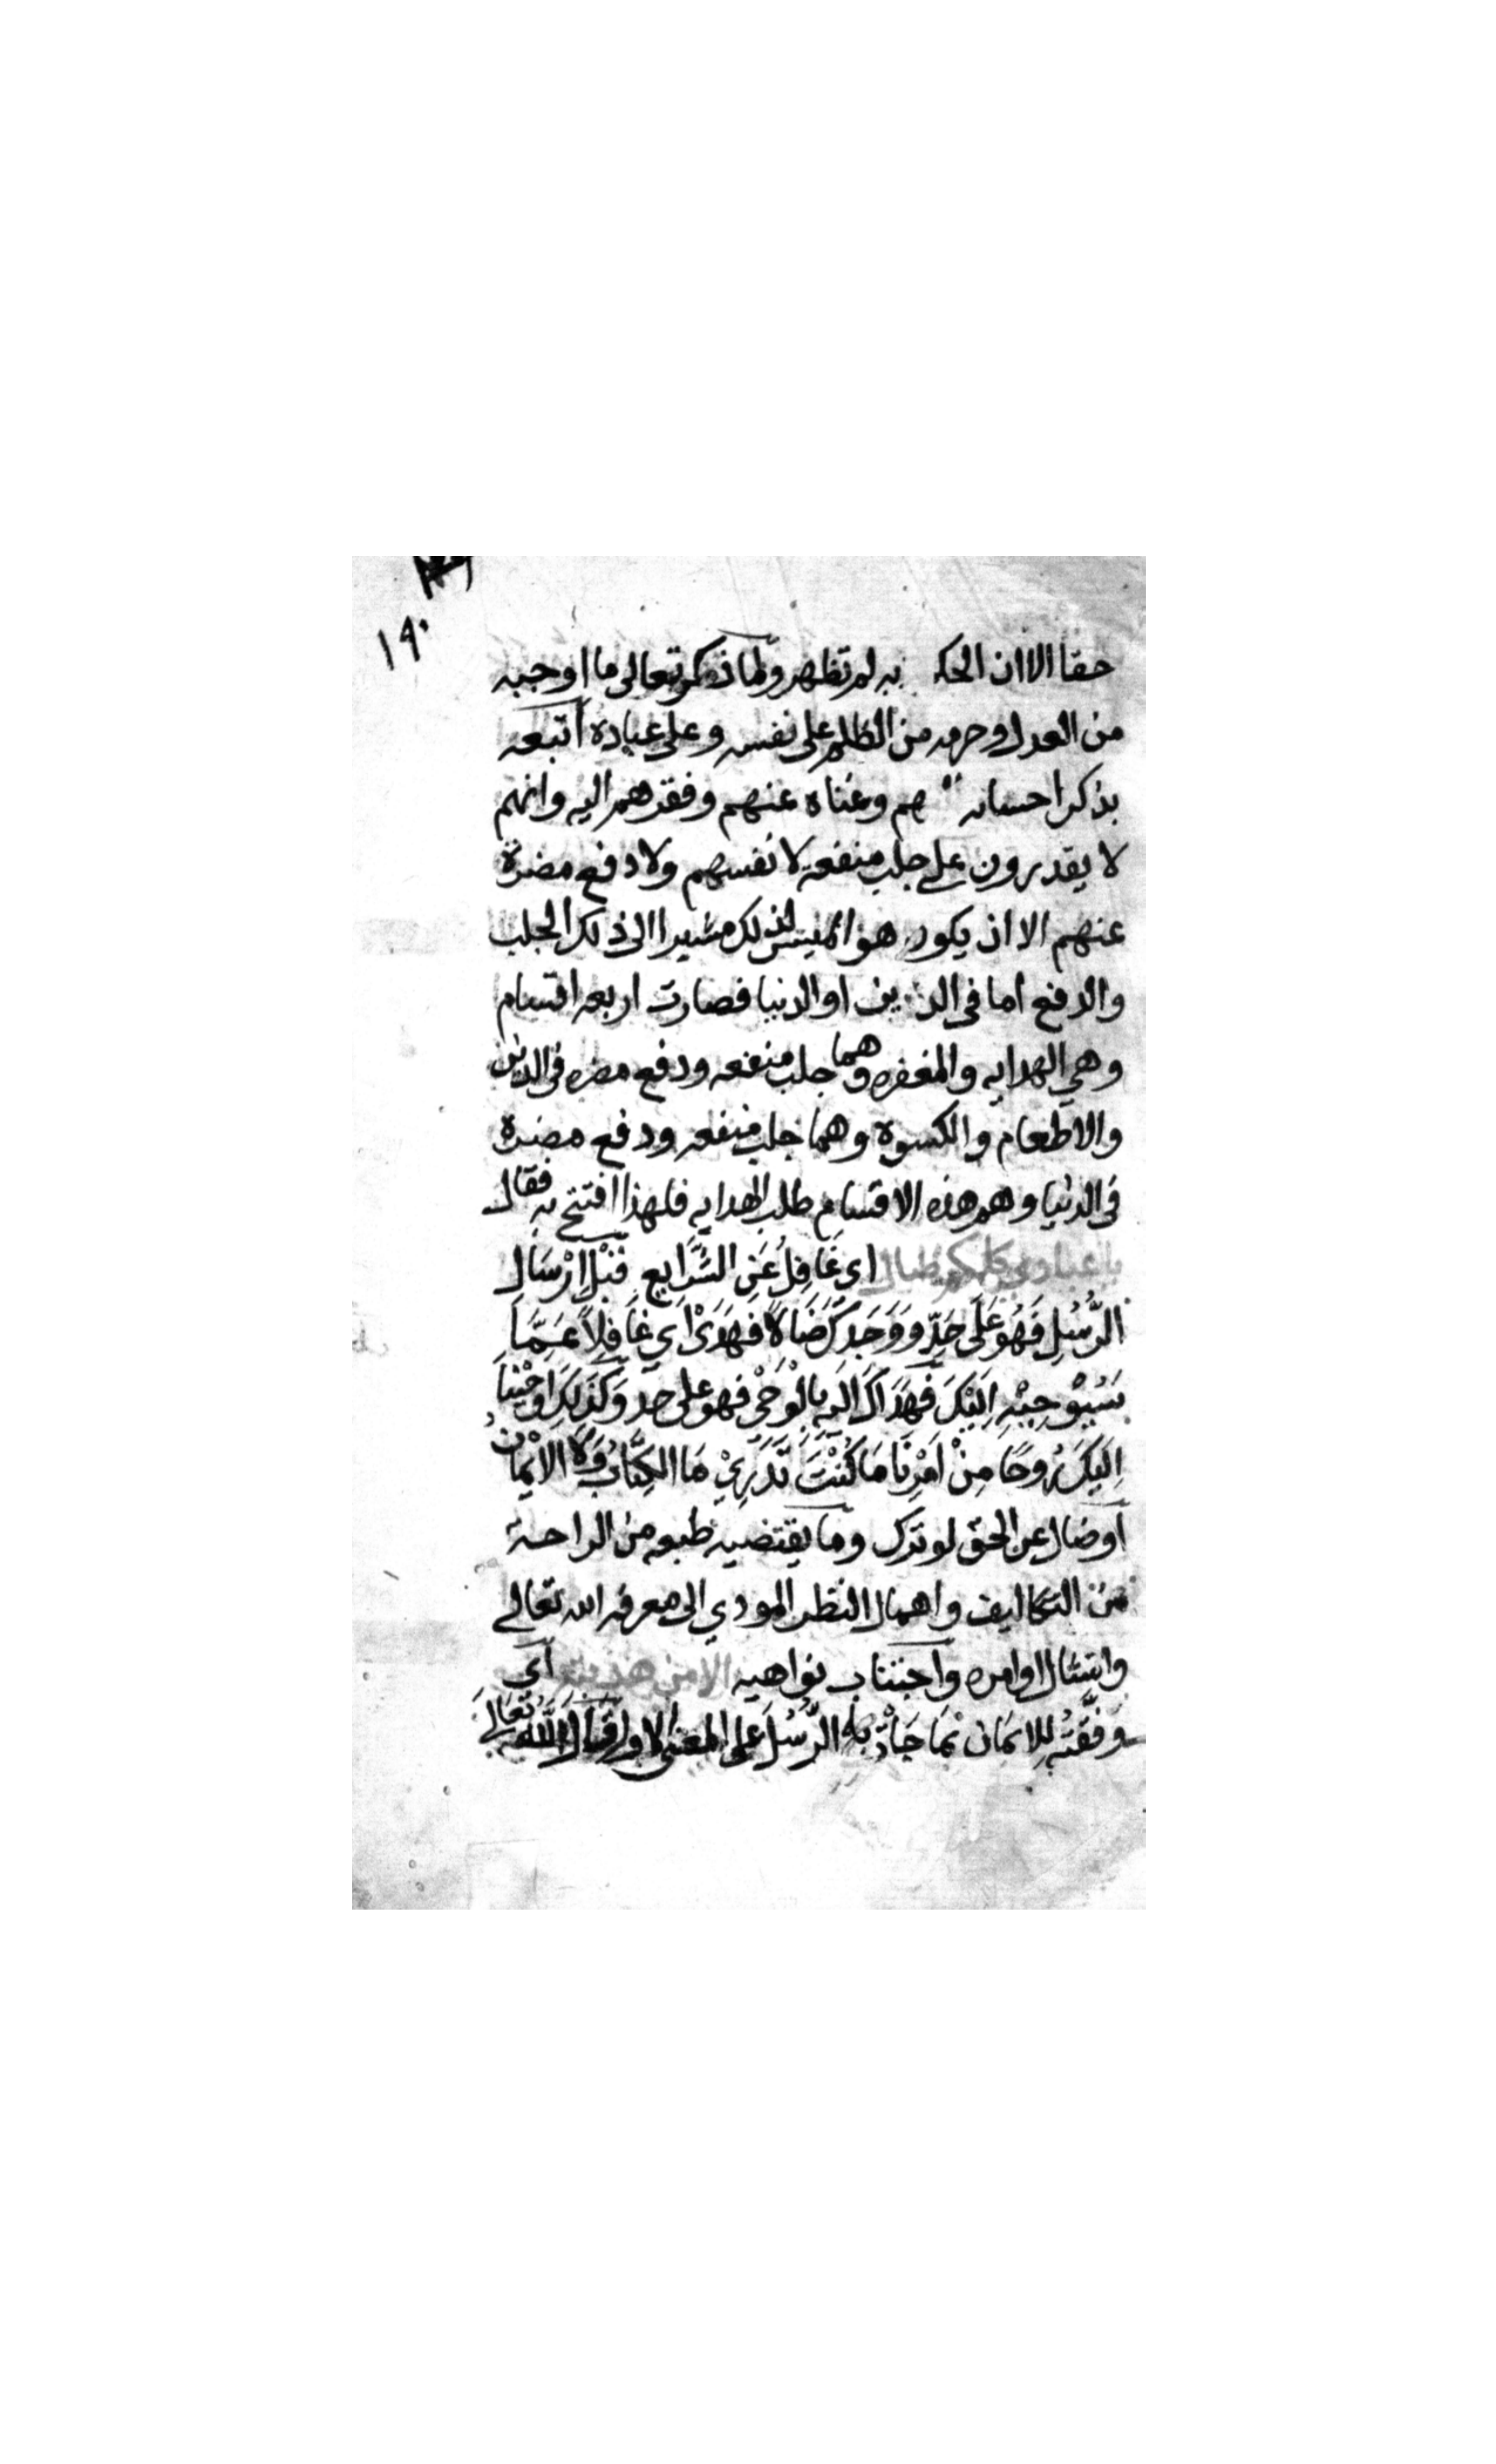 ١٩٠
حقا الا ان الحكم به لم تظهر ولما ذكر تعالى ما اوجبه
من العدل وحرمه من الظلم على نفسه وعلى عباده اتبعه
بذكر احسانه هم وغناه عنهم وفقرهم اليه وانهم
لا يقدرون على جلب منفعة لانفسهم ولا دفع مضرة
عنهم الا ان يكون هو الميسر لذلك مشيرا الى ذلك الجلب
والدفع اما في الدين او الدنيا فصارت اربعه اقسام
وهي الهدايه والمغفره وهما جلب منفعه ودفع مضره في الدين
والاطعام والكسوة وهما جلب منفعه ودفع مضرة
في الدنيا وهم هذه الاقسام طلب الهدايه فلهذا افتتح به فقال
يا عبادي كلكم ضال اي غَافِلٌ عَنِ الشَّرَايِعِ قَبْلَ اِرْسَالِ
الرُّسُلِ فَهُوَ عَلَى حَدِّ وَوَجَدَكَ ضَالًّا فَهَدَىْ اَيْ غَافِلًا عَمَّا
سَيُوْحِيْهِ اِلَيْكَ فَهَدَاكَ اِلَيْهِ بِالْوَحْيِ فهو على حد وَكَذَلِكَ اَوْحَيْنَا
اِلَيْكَ رُوحًا مِنْ اَمْرِنَا مَا كُنْتَ تَدْرِيْ مَا الكِتَابُ وَلَا الاِيْمَانُ
او ضال عن الحق لو ترك وما يقتضيه طبعه من الراحة
من التكاليف واهمال النظر المودي الى معرفه الله تعالى
وامتثال اوامره واجتناب نواهيه الا من هديته اي
وَفَّقْتُهُ لِلاِيمَان بمَا جَاءَتْ بِهِ الرُّسُلُ على المعنى الاول وَقَالَ اللهُ تَعَالَى